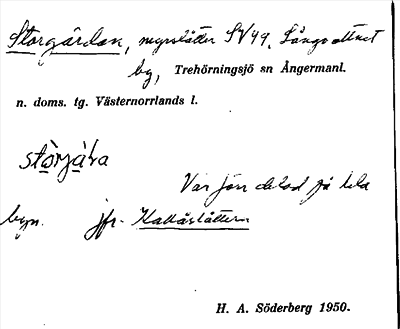 Storgården, myrslåtter SV49, Långvattnet
by, Trehörningsjö sn Ångermanl.
n. doms. tg. Västernorrlands l.
Var förr delad på hela
byn. jfr. Kallåslåttern
H. A. Söderberg 1950.